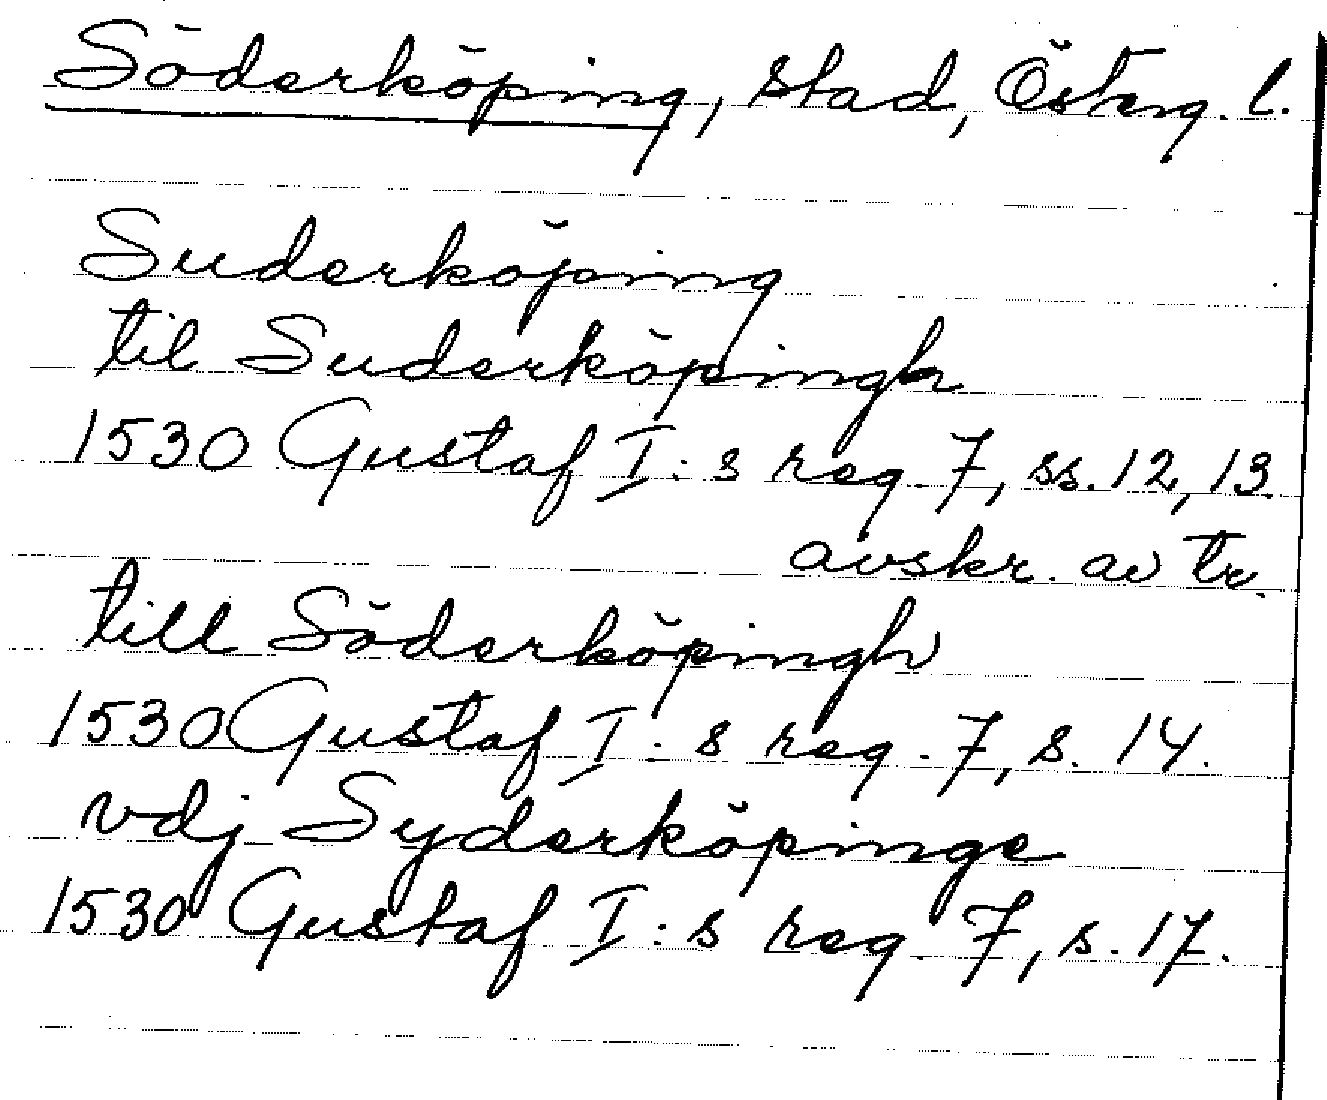 Söderköping, stad, Österg. l.
Suderköping
til Suderköpingh
1530 Gustaf I:s reg. 7, ss. 12, 13
avskr. av tr.
till Söderköpingh
1530 Gustaf I:s reg. 7, s. 14.
vdj Syderköpinge
1530 Gustaf I:s reg. 7, s. 17.